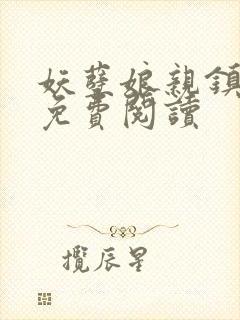 妖孽娘親鎮
免費閱讀
攬辰星